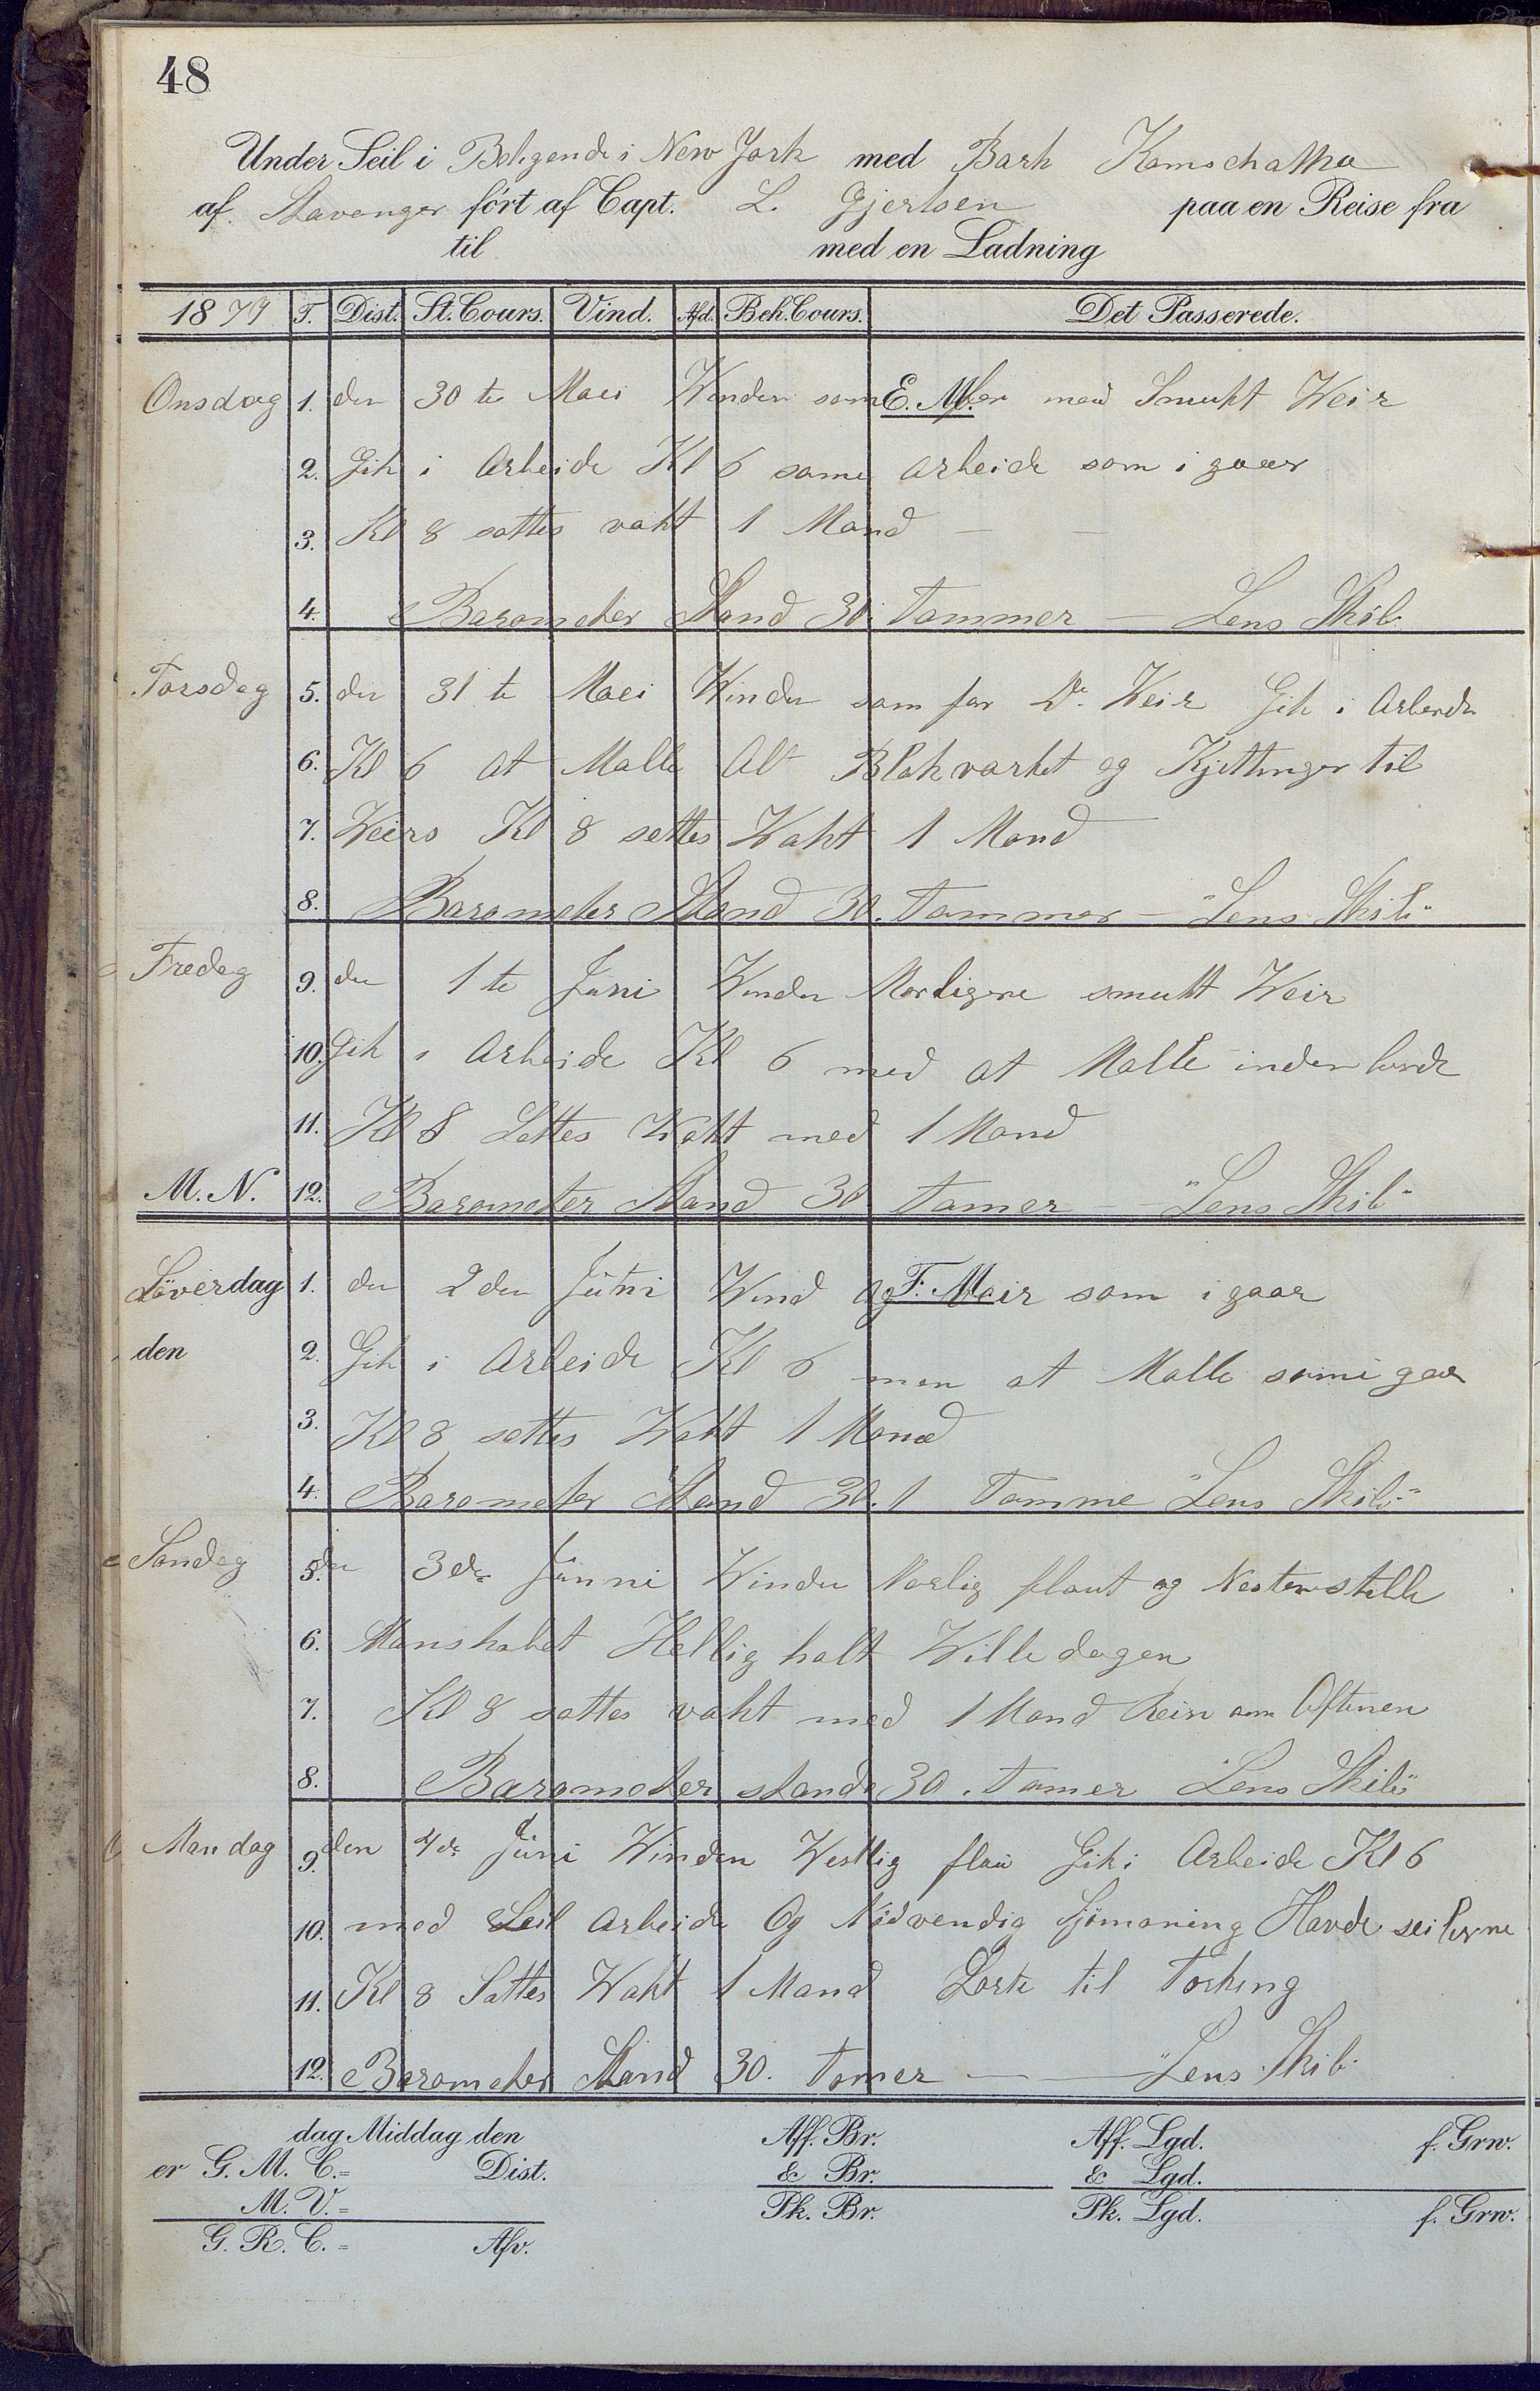 48
Under Seil i Beligende i New York med Bark Kamschatka
af Stavanger fört af Capt. L. Gjertsen paa en Reise fra
til med en Ladning
1879 T. Dist. St. Cours. Vind. Afd. Beh. Cours. Det Passerede.
Onsdag 1. den 30te Maei Winden som E.M. før med Smukt Weir
2. Gik i Arbeide Kl 6 same arbeide som i gaaer
3. Kl 8 sattes vakt 1 Mand — —
4. Barometer Stand 30. Tommer — Lens Skib
Torsdag 5. den 31te Maei Winden som før D. Weir Gik i Arbeide
6. Kl 6 at Malle Alt Blokvarket og Kjettinger til
7. Veirs Kl 8 settes Wakt 1 Mand
8. Barometer Stand 30. Tommer — "Lens Skib"
Fredag 9. den 1te Juni Winden Nordligere smukt Weir
10. Gik i Arbeide Kl 6 med at Malle inden bords
11. Kl 8 Settes Wakt med 1 Mand
M. N. 12. Barometer Stand 30 Tomer — "Lens Skib"
Löverdag 1. den 2den Juni Wind og F.M. Weir som i gaar
den 2. Gik i Arbeide Kl 6 men at Malle som i gaar
3. Kl 8 settes Wakt 1 Mand
4. Barometer Stand 30.1 Tomme "Lens Skib"
Søndag 5. den 3de Junni Winden Norlig flaut og Nesten stille
6. Manskabet Hellig halt Wille dagen
7. Kl 8 sattes vakt med 1 Mand Rein om Aftenen
8. Barometer stande 30. tomer Lens Skib"
Mandag 9. den 4de Juni Winden Westlig flau Gik i Arbeide Kl 6
10. med Seil arbeide Og Nödvendig Sjömaning Havde seilerne
11. Kl 8 Sattes Wakt 1 Mand Lorte til Torking
12. Barometer Stand 30. tomer — "Lens Skib"
dag Middag den Aff. Br. Aff. Lgd. f. Grw.
er G. M. C.= Dist. & Br. & Lgd.
M. V.= Pk. Br. Pk. Lgd. f. Grw.
G. R. C.= Afv.